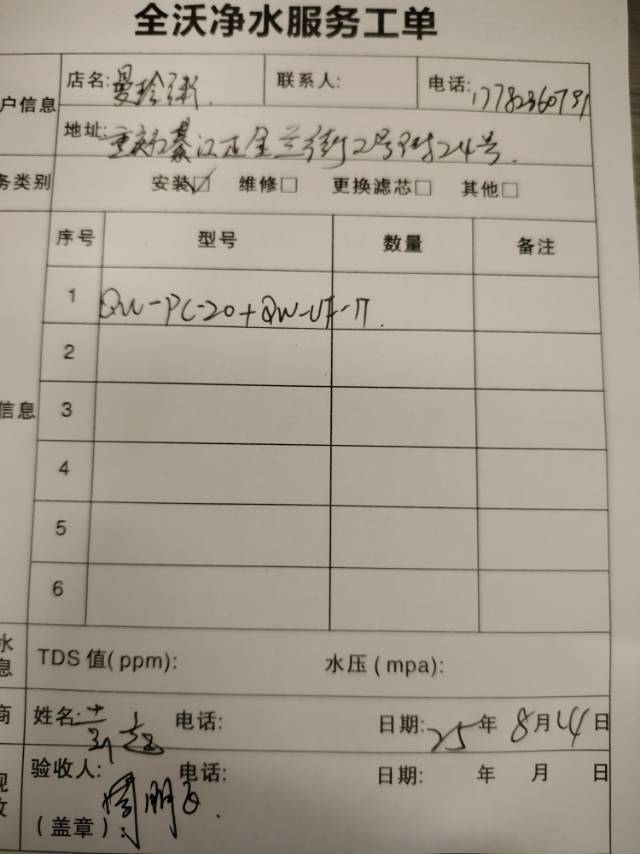 全沃净水服务工单
户信息
店名: 曼玲粥 联系人: 电话: 17782360731
地址: 重庆綦江区金兰街2号附24号
务类别 安装☑ 维修□ 更换滤芯□ 其他□
序号 型号 数量 备注
1 QW-PC-20+QW-UF-17
2
信息 3
4
5
6
水息 TDS 值(ppm): 水压(mpa):
商 姓名: 电话: 日期: 25年8月14日
验收人: 电话: 日期: 年 月 日
(盖章)